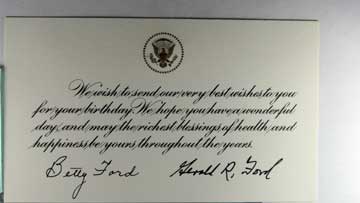 We wish to send our very best wishes to you
for your birthday. We hope you have a wonderful
day, and may the richest blessings of health and
happiness be yours throughout the years.
Betty Ford Gerald R. Ford